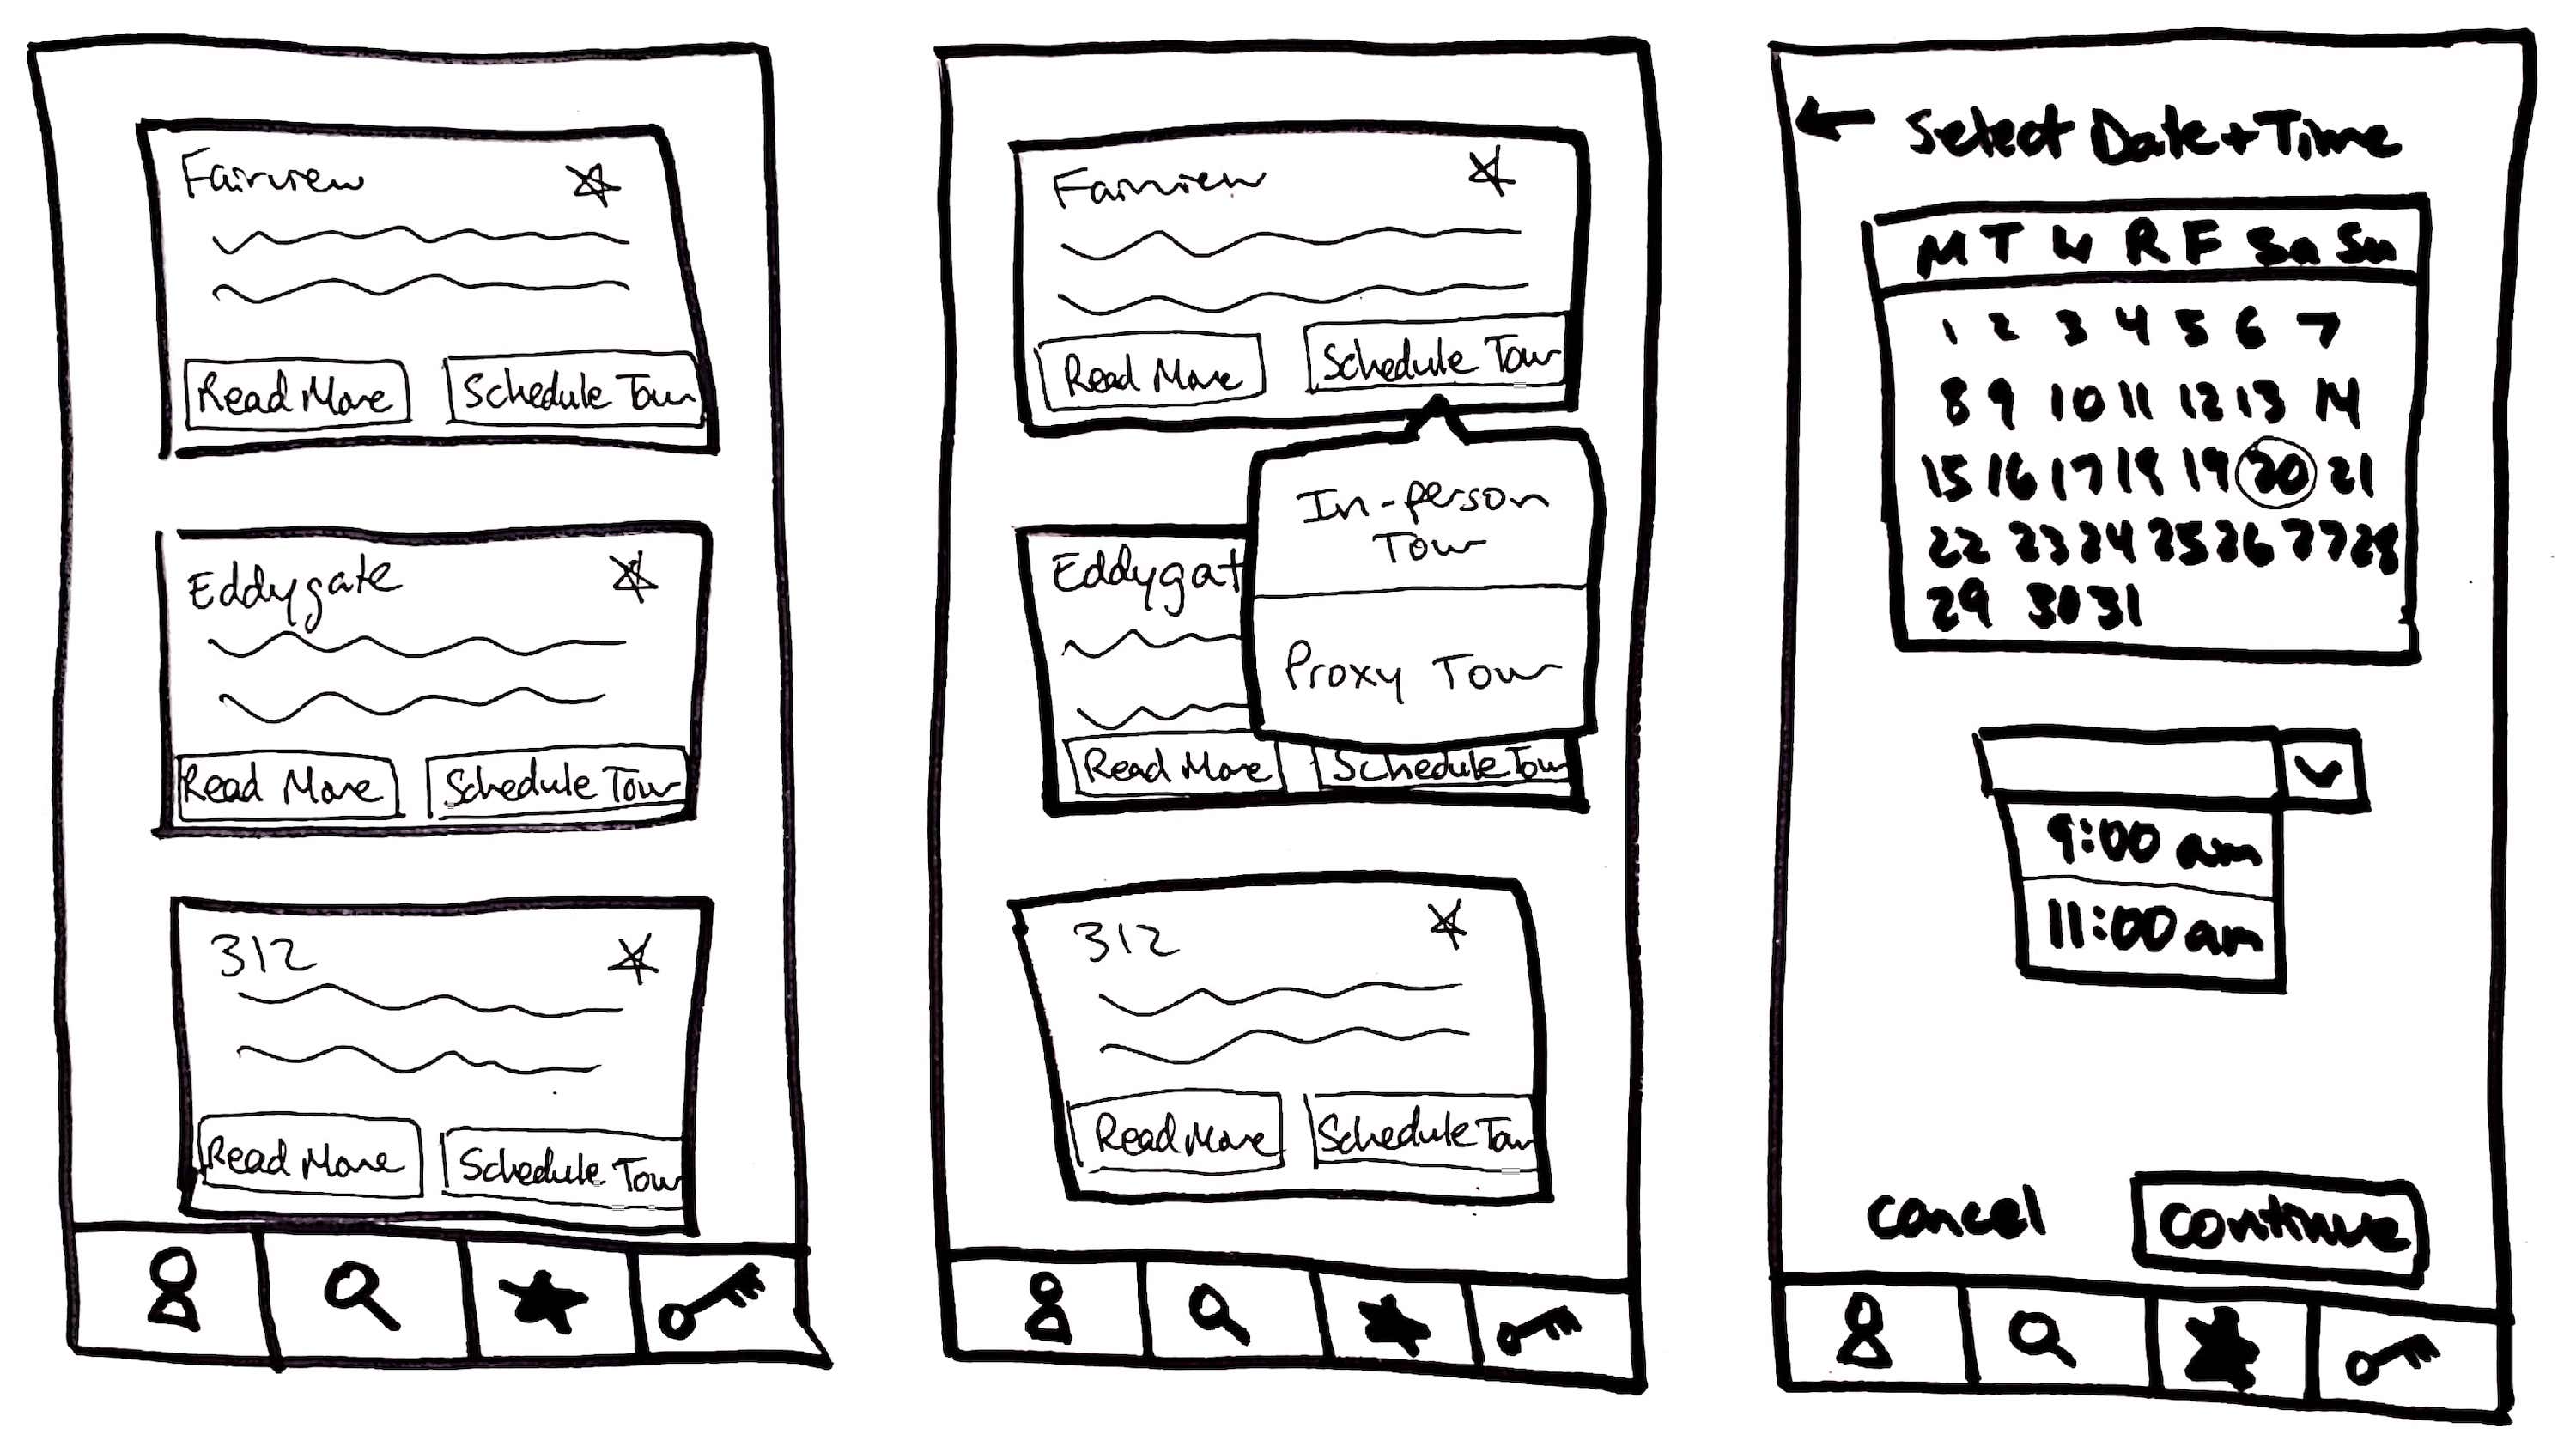 Fairview
Read More
Schedule Tour
Eddygate
Read More
Schedule Tour
312
Read More
Schedule Tour
Fairview
Read More
Schedule Tour
In-person
Tour
Proxy Tour
Eddygat
Read More
Schedule Tour
312
Read More
Schedule Tour
Select Date + Time
M T W R F Sa Su
1 2 3 4 5 6 7
8 9 10 11 12 13 14
15 16 17 18 19 20 21
22 23 24 25 26 27 28
29 30 31
9:00 am
11:00 am
cancel
continue